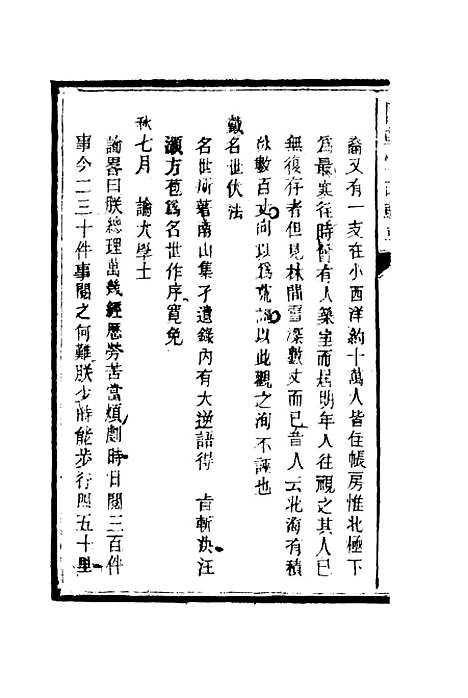 裔又有一支在小西洋約十萬人皆住帳房惟北極下
爲最寒往時曾有人築室而居明年人往視之其人已
無復存者但見林間雪深數丈而已昔人云北海有積
氷數百丈向以爲荒誕以此觀之洵不誣也
戴名世伏法
名世所著南山集孑遺錄內有大逆語得 旨斬決汪
灝方苞爲名世作序寬免
秋七月 諭大學士
諭畧曰朕總理萬幾經歷勞苦當煩劇時日閱三百件
事今二三十件事閱之何難朕少時能步行四五十里